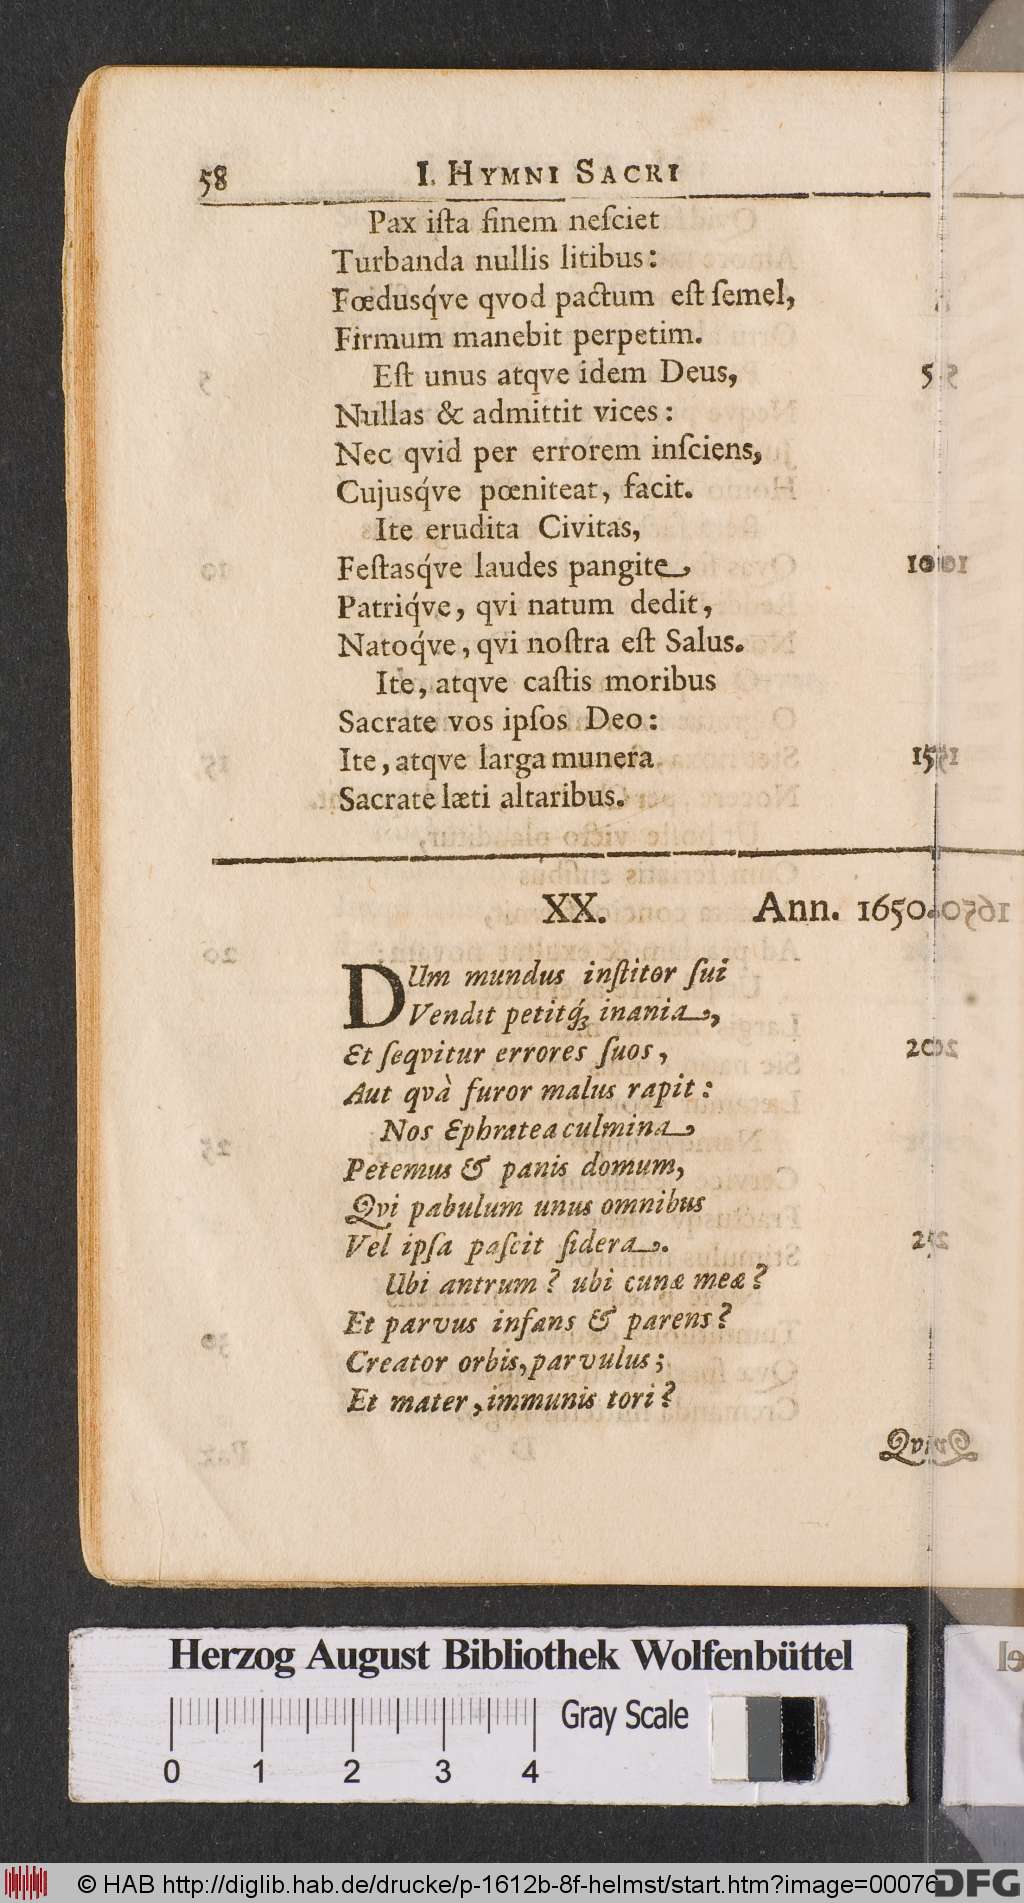 58 I. HYMNI SACRI
Pax iſta finem neſciet
Turbanda nullis litibus:
Fœdusq́ve qvod pactum eſt ſemel,
Firmum manebit perpetim.
Eſt unus atqve idem Deus, 5
Nullas & admittit vices:
Nec qvid per errorem inſciens,
Cujusq́ve pœniteat, facit.
Ite erudita Civitas,
Feſtasq́ve laudes pangite 10
Patriq́ve, qvi natum dedit,
Natoq́ve, qvi noſtra eſt Salus.
Ite, atqve caſtis moribus
Sacrate vos ipſos Deo:
Ite, atqve larga munera 15
Sacrate læti altaribus.
XX. Ann. 1650.
DUm mundus inſtitor ſui
Vendit petitq́; inania,
Et ſeqvitur errores ſuos, 20
Aut qvà furor malus rapit:
Nos Ephratea culmina
Petemus & panis domum,
Qvi pabulum unus omnibus
Vel ipſa paſcit ſidera. 25
Ubi antrum? ubi cunæ meæ?
Et parvus infans & parens?
Creator orbis, parvulus;
Et mater, immunis tori?
Herzog August Bibliothek Wolfenbüttel
Gray Scale
0 1 2 3 4
© HAB http://diglib.hab.de/drucke/p-1612b-8f-helmst/start.htm?image=00076
DFG